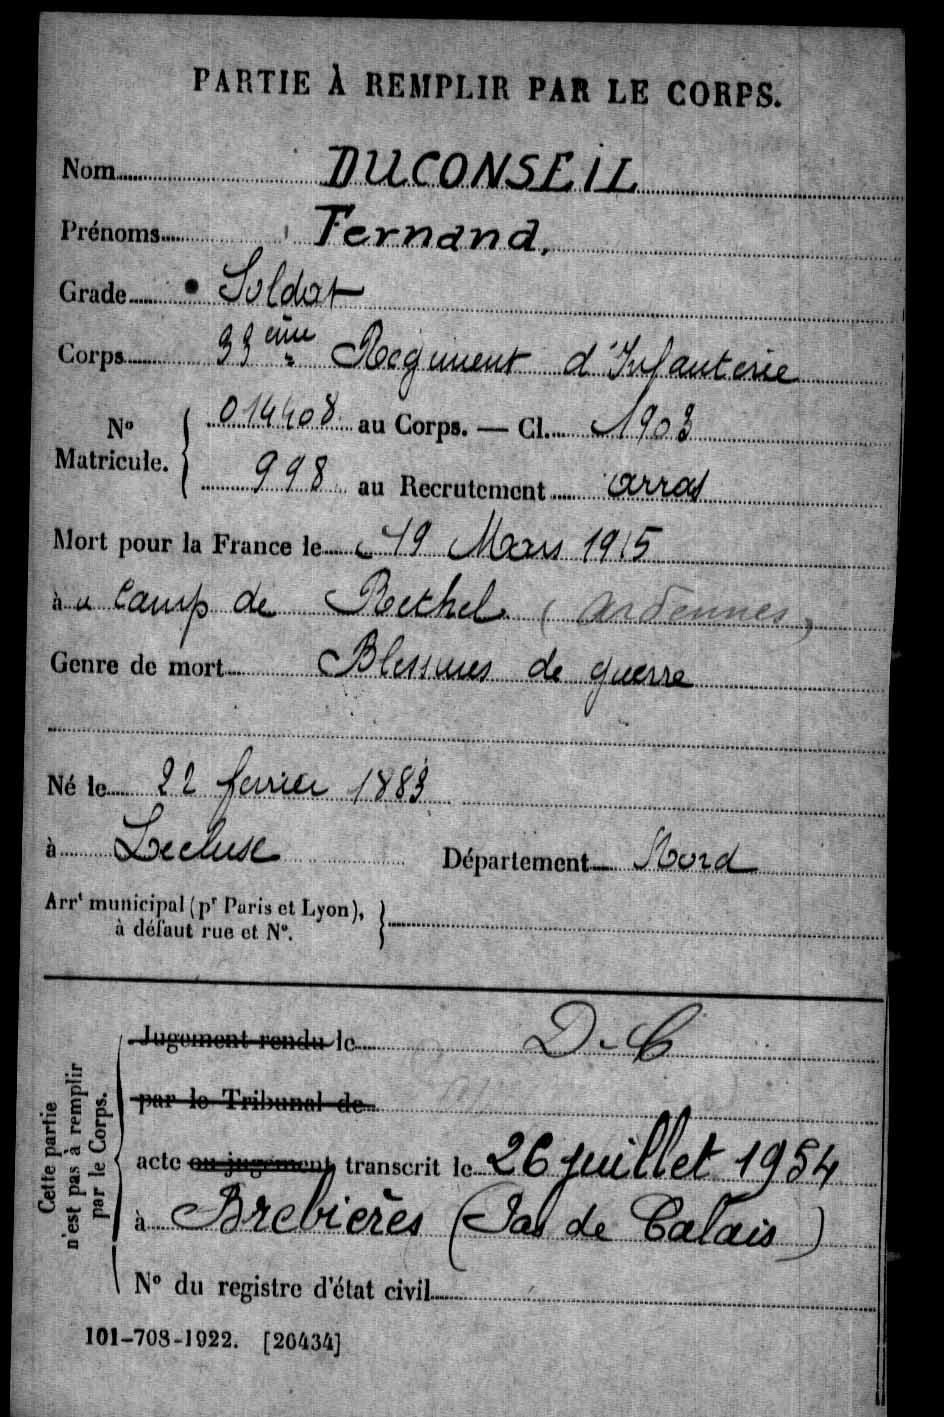 PARTIE À REMPLIR PAR LE CORPS.
Nom DUCONSEIL
Prénoms Fernand.
Grade Soldat
Corps 33ème Régiment d'Infanterie
No Matricule. { 014408 au Corps. — Cl. 1903
998 au Recrutement arras
Mort pour la France le 19 Mars 1915
à u Camp de Rethel (Ardennes)
Genre de mort Blessures de guerre
Né le 22 fevrier 1883
à Lecluse Département Nord
Arrt municipal (pr Paris et Lyon), à défaut rue et No. }
Cette partie n'est pas à remplir par le Corps.
Jugement rendu le D.C
par le Tribunal de
acte ou jugement transcrit le 26 juillet 1954
à Brebières (Pas de Calais)
No du registre d'état civil
101-708-1922. [26434]